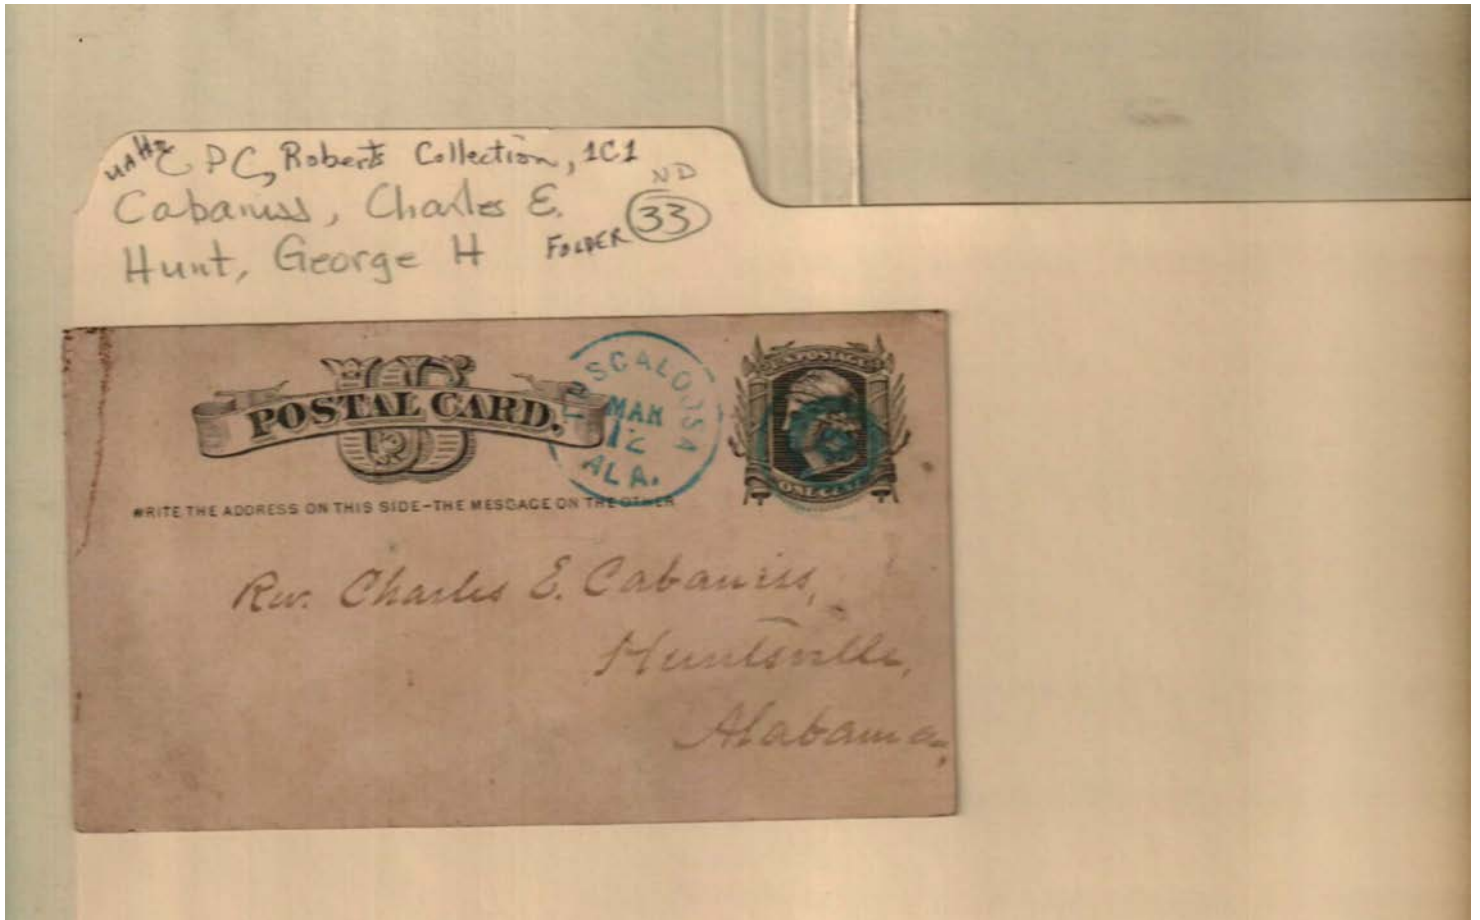 UAHZ E P C, Roberts Collection, 1C1
ND
Cabaniss, Charles E.
Hunt, George H FOLDER 33
US
POSTAL CARD.
TUSCALOOSA
MAR
12
ALA.
U.S. POSTAGE
ONE CENT
WRITE THE ADDRESS ON THIS SIDE-THE MESSAGE ON THE OTHER
Rev. Charles E. Cabaniss,
Huntsville,
Alabama,